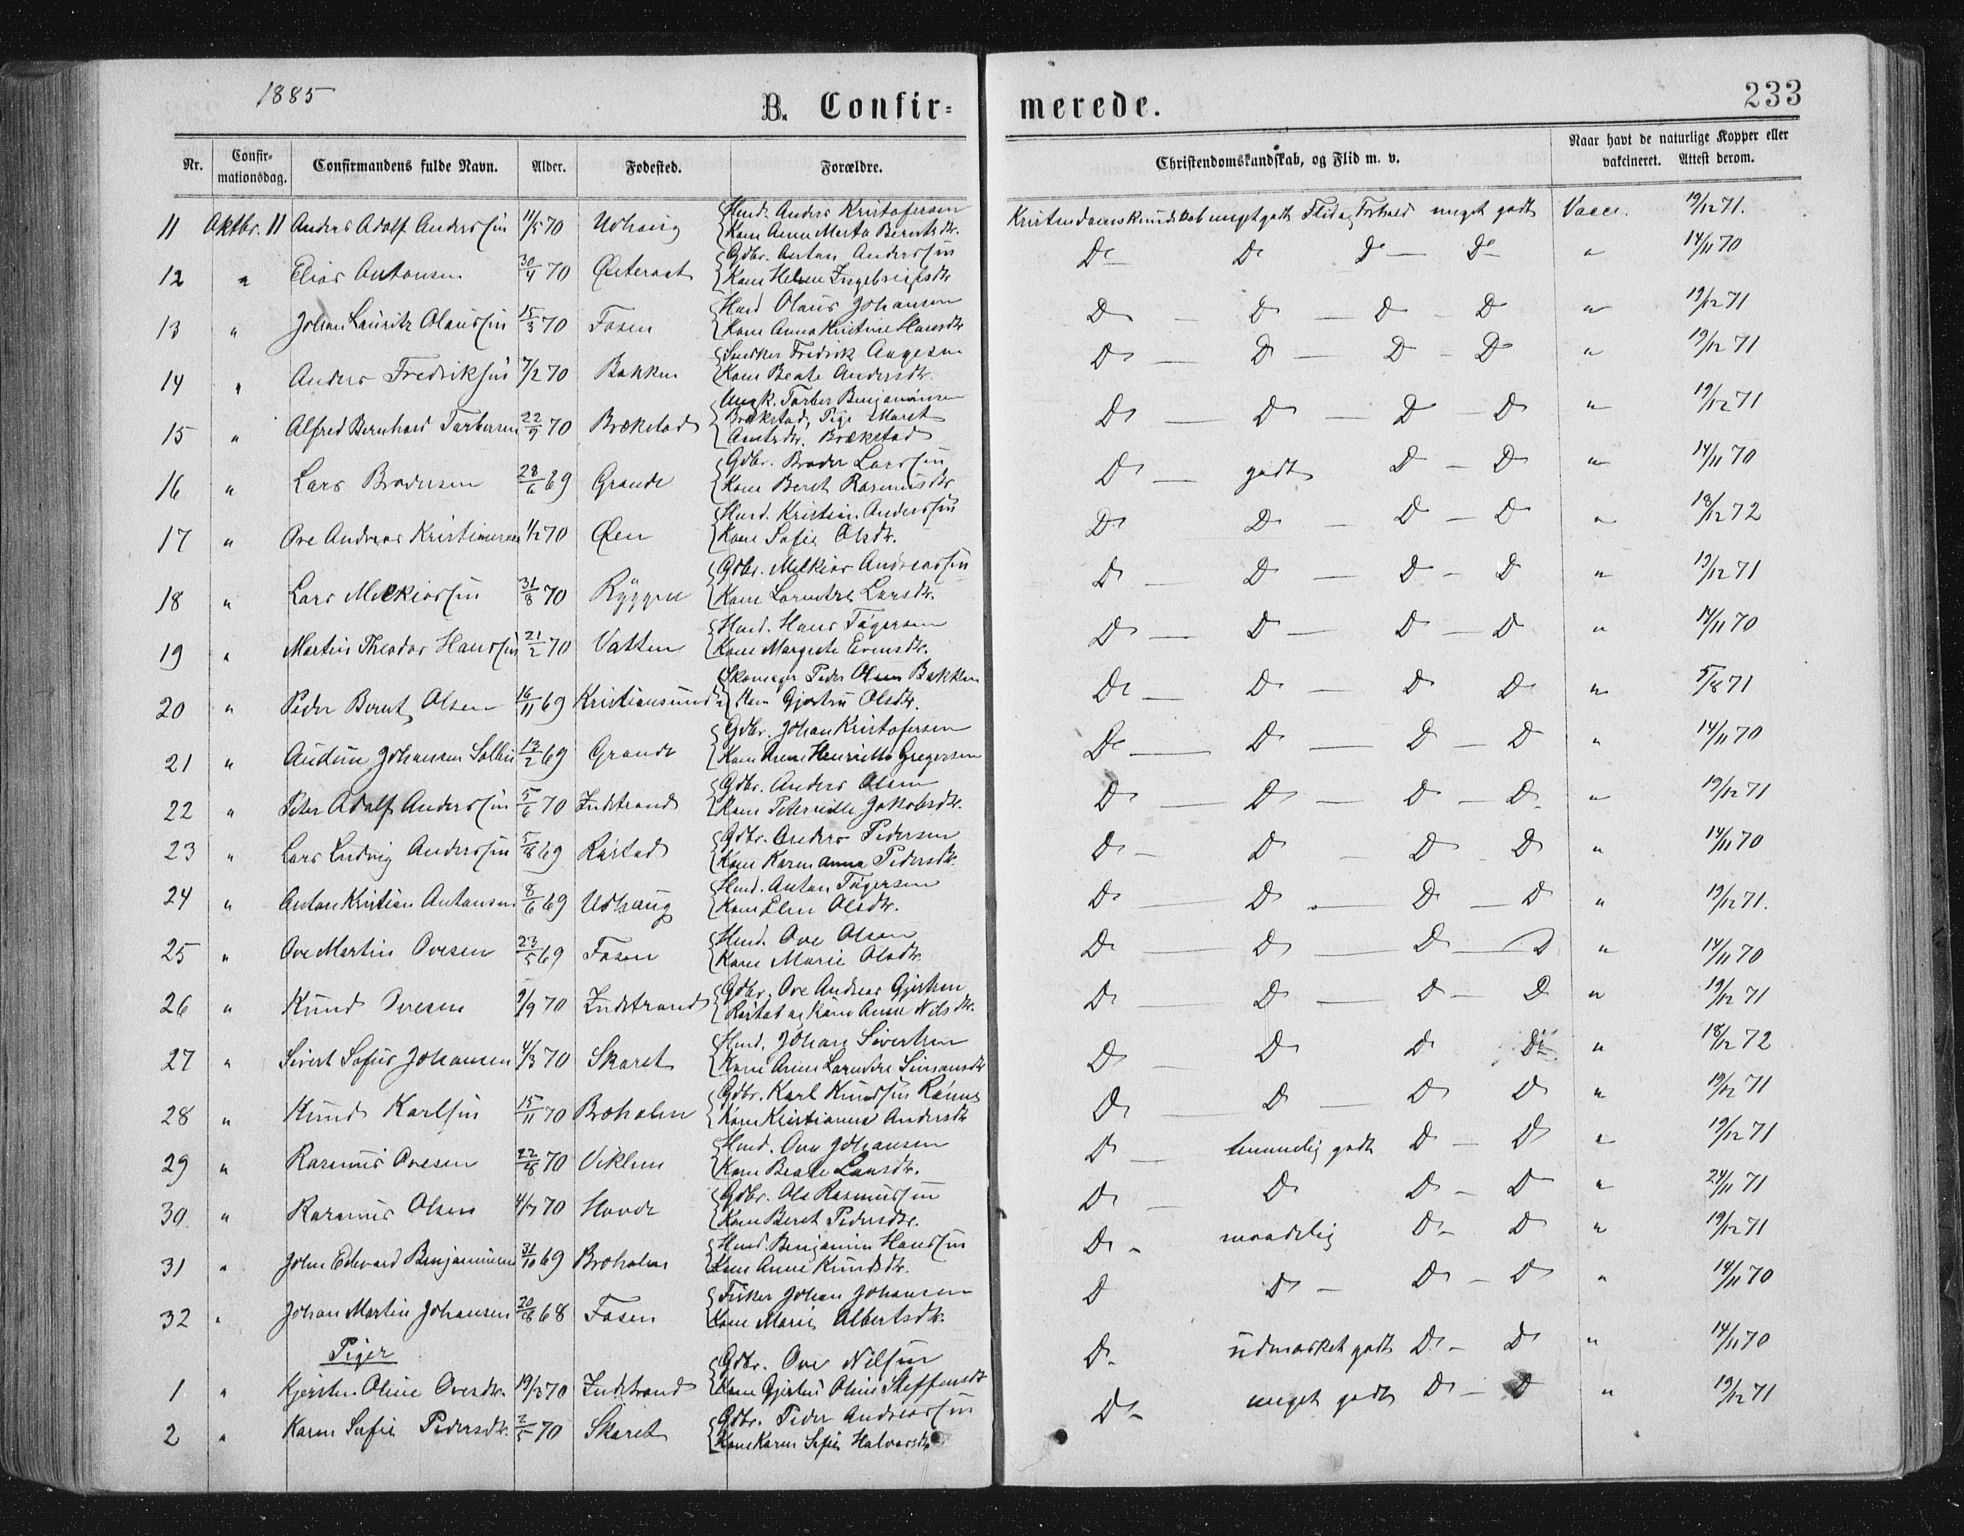 1885
B. Confir-
merede.
233
Nr.
Confirmationsdag.
Confirmandens fulde Navn.
Alder.
Fødested.
Forældre.
Christendomskundskab, og Flid m. v.
Naar havt de naturlige Kopper eller vakcineret. Attest derom.
11 Oktbr. 11 Anders Adolf Anderssøn 11/5 70 Udhaug Husmd. Anders Kristofersen Kone Anne Marta Berntsdr. Kristendomskundskab meget godt Flid og Forhold meget godt Vacc. 19/12 71.
12 " Elias Antonsen 30/4 70 Østeraat Gdbr. Anton Anderssøn Kone Helene Ingebrigtsdr. Do Do Do — Do " 14/11 70
13 " Johan Lauritz Olaussøn 15/3 70 Fosen Husmd Olaus Johansen Kone Anna Kristine Hansdr. Do — Do — Do — Do " 19/12 71
14 " Anders Fredriksøn 7/2 70 Bakken Snedker Fredrik Aagesen Kone Beate Andersdr. Do — Do — Do - Do " 19/12 71
15 " Alfred Bernhard Torbersen 22/9 70 Brækstad Ungk. Torber Benjaminsen Brækstad, Pige Maret Arntsdr. Brækstad Do — Do — Do — Do " 19/12 71
16 " Lars Brodersen 28/6 69 Grande Gdbr. Broder Larssøn Kone Beret Rasmusdr. Do — godt Do — Do " 14/11 70
17 " Ove Andreas Kristiansen 1/2 70 Øien Husmd. Kristian Anderssøn Kone Sofie Olsdr. Do Do — Do — Do " 18/12 72
18 " Lars Melkiorsøn 31/8 70 Ryggen Gdbr. Melkior Andreassøn Kone Larntse Larsdr. Do — Do — Do — Do " 19/12 71
19 " Martin Theodor Hanssøn 21/2 70 Vatten Husmd. Hans Tøgersen Kone Margrete Evensdr. Do — Do — Do — Do " 14/11 70
20 " Peder Bernt Olsen 16/11 69 Kristiansund Skomager Peder Olsen Bakken Kone Gjertru Olsdr. Do — Do — Do Do " 5/8 71
21 " Audun Johansen Sollie 13/2 69 Grande Gdbr. Johan Kristofersen Kone Anne Henriette Gregersen Do — Do — Do — Do " 14/11 70
22 " Peter Adolf Anderssøn 5/6 70 Indstrand Gdbr. Anders Olsen Kone Peternille Jakobsdr. Do — Do — Do — Do " 19/12 71
23 " Lars Ludvig Anderssøn 5/8 69 Røstad Gdbr. Anders Pedersen Kone Karen Anna Pedersdr. Do — Do — Do Do " 14/11 70
24 " Anton Kristian Antonsen 8/6 69 Udhaug Husmd. Anton Tøgersen Kone Elen Olsdr. Do — Do — Do — Do " 19/12 71.
25 " Ove Martin Ovesen 23/5 69 Fosen Husmd. Ove Olsen Kone Marie Olsdr. Do — Do — Do — Do " 14/11 70
26 " Knud Ovesen 9/9 70 Indstrand Gdbr. Ove Andreas Gjertsen Røstad og Kone Anne Nilsdr. Do — Do — Do — Do " 19/12 71
27 " Sivert Sofus Johansen 4/3 70 Skaret Husmd. Johan Sivertsen Kone Anne Larntse Simonsdr Do — Do Do Do " 18/12 72
28 " Knud Karlsøn 15/11 70 Broholm Gdbr. Karl Knudsøn Rønne Kone Kristianna Andersdr Do — Do — Do Do " 19/12 71
29 " Rasmus Ovesen 22/8 70 Viklem Husmd. Ove Johansen Kone Beate Larsdr. Do — temmelig godt Do — Do " 19/12 71
30 " Rasmus Olsen 4/7 70 Hovde Gdbr. Ole Rasmussøn Kone Beret Pedersdr. Do — Do Do — Do " 24/11 71
31 " John Edvard Benjaminsen 31/10 69 Broholm Husmd. Benjamin Hanssøn Kone Anne Knudsdr. Do — maadelig Do — Do " 19/12 71
32 " Johan Martin Johansen 20/8 68 Fosen Fisker Johan Johansen Kone Marie Albertsdr. Do Do — Do — Do " 14/11 70
Piger
1 " Kjersten Oline Ovesdr. 19/3 70 Indstrand Gdbr. Ove Nilsøn Kone Gjertru Oline Steffensdr Do — udmærket godt Do — Do " 14/11 70
2 " Karen Sofie Pedersdr. 2/5 70 Skaret Gdbr. Peder Andreassøn Kone Karen Sofie Halvorsdr. Do — meget godt Do — Do " 19/12 71